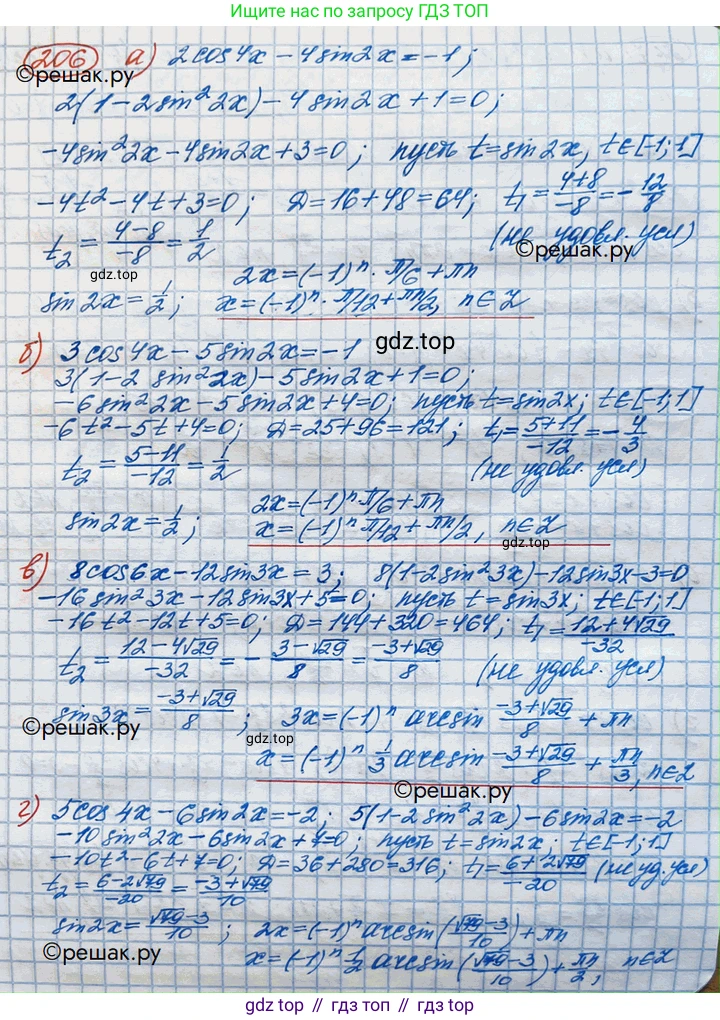 Ищите ответы по запросу ГДЗ ТОП
206 а) 2cos4x - 4sin2x = -1;
©решак.ру
2(1 - 2sin² 2x) - 4sin2x + 1 = 0;
-4sin²2x - 4sin2x + 3 = 0; пусть t = sin2x, t∈[-1;1]
-4t² - 4t + 3 = 0; D = 16 + 48 = 64; t₁ = (4+8)/(-8) = -12/8
t₂ = (4-8)/(-8) = 1/2 (не удовл. усл)
©решак.ру
gdz.top
2x = (-1)ⁿ · π/6 + πn
sin2x = 1/2; x = (-1)ⁿ · π/12 + πn/2, n∈Z
б) 3cos4x - 5sin2x = -1
gdz.top
3(1 - 2 sin²2x) - 5sin2x + 1 = 0;
-6sin²2x - 5sin2x + 4 = 0; пусть t = sin2x; t∈[-1;1]
-6t² - 5t + 4 = 0; D = 25 + 96 = 121; t₁ = (5+11)/(-12) = -4/3
t₂ = (5-11)/(-12) = 1/2 (не удовл. усл)
2x = (-1)ⁿ π/6 + πn
sin2x = 1/2; x = (-1)ⁿ π/12 + πn/2, n∈Z
gdz.top
в) 8cos6x - 12sin3x = 3; 8(1 - 2sin²3x) - 12sin3x - 3 = 0
-16sin²3x - 12sin3x + 5 = 0; пусть t = sin3x; t∈[-1;1]
-16t² - 12t + 5 = 0; D = 144 + 320 = 464; t₁ = (12+4√29)/(-32)
t₂ = (12-4√29)/(-32) = -(3-√29)/8 = (-3+√29)/8 (не удовл. усл)
sin3x = (-3+√29)/8; 3x = (-1)ⁿ arcsin (-3+√29)/8 + πn
©решак.ру
gdz.top
x = (-1)ⁿ 1/3 arcsin (-3+√29)/8 + πn/3, n∈Z
©решак.ру
г) 5cos4x - 6sin2x = -2; 5(1 - 2sin²2x) - 6sin2x = -2
-10sin²2x - 6sin2x + 7 = 0; пусть t = sin2x; t∈[-1;1]
-10t² - 6t + 7 = 0; D = 36 + 280 = 316; t₁ = (6+2√79)/(-20) (не уд. усл)
t₂ = (6-2√79)/(-20) = (-3+√79)/10
sin2x = (√79-3)/10; 2x = (-1)ⁿ arcsin((√79-3)/10) + πn
©решак.ру
x = (-1)ⁿ 1/2 arcsin((√79-3)/10) + πn/2, n∈Z
gdz.top
gdz.top // гдз.топ // gdz.top // гдз.топ